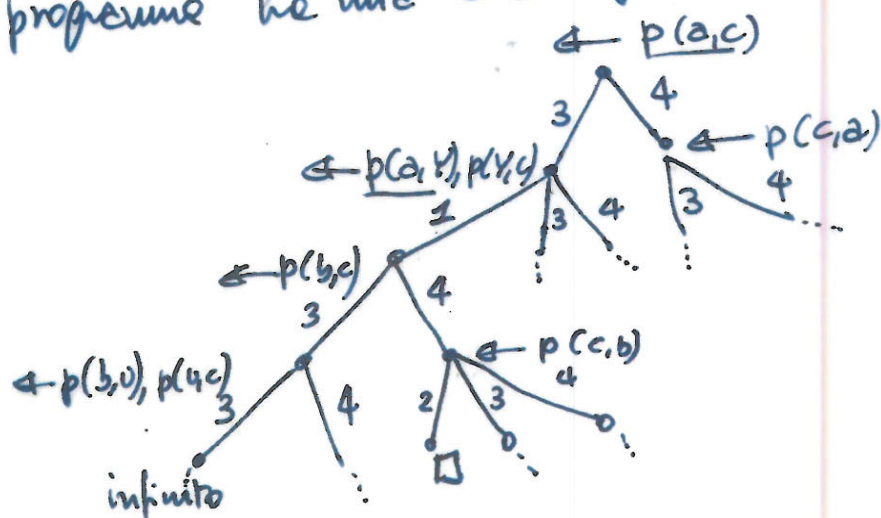 programma ha una
← p(a,c)
3 4
← p(c,a)
← p(a,Y), p(Y,c)
3 4
1 3 4
← p(b,c)
3 4
← p(c,b)
← p(b,U), p(U,c)
3 4 2 3 4
□
infinito